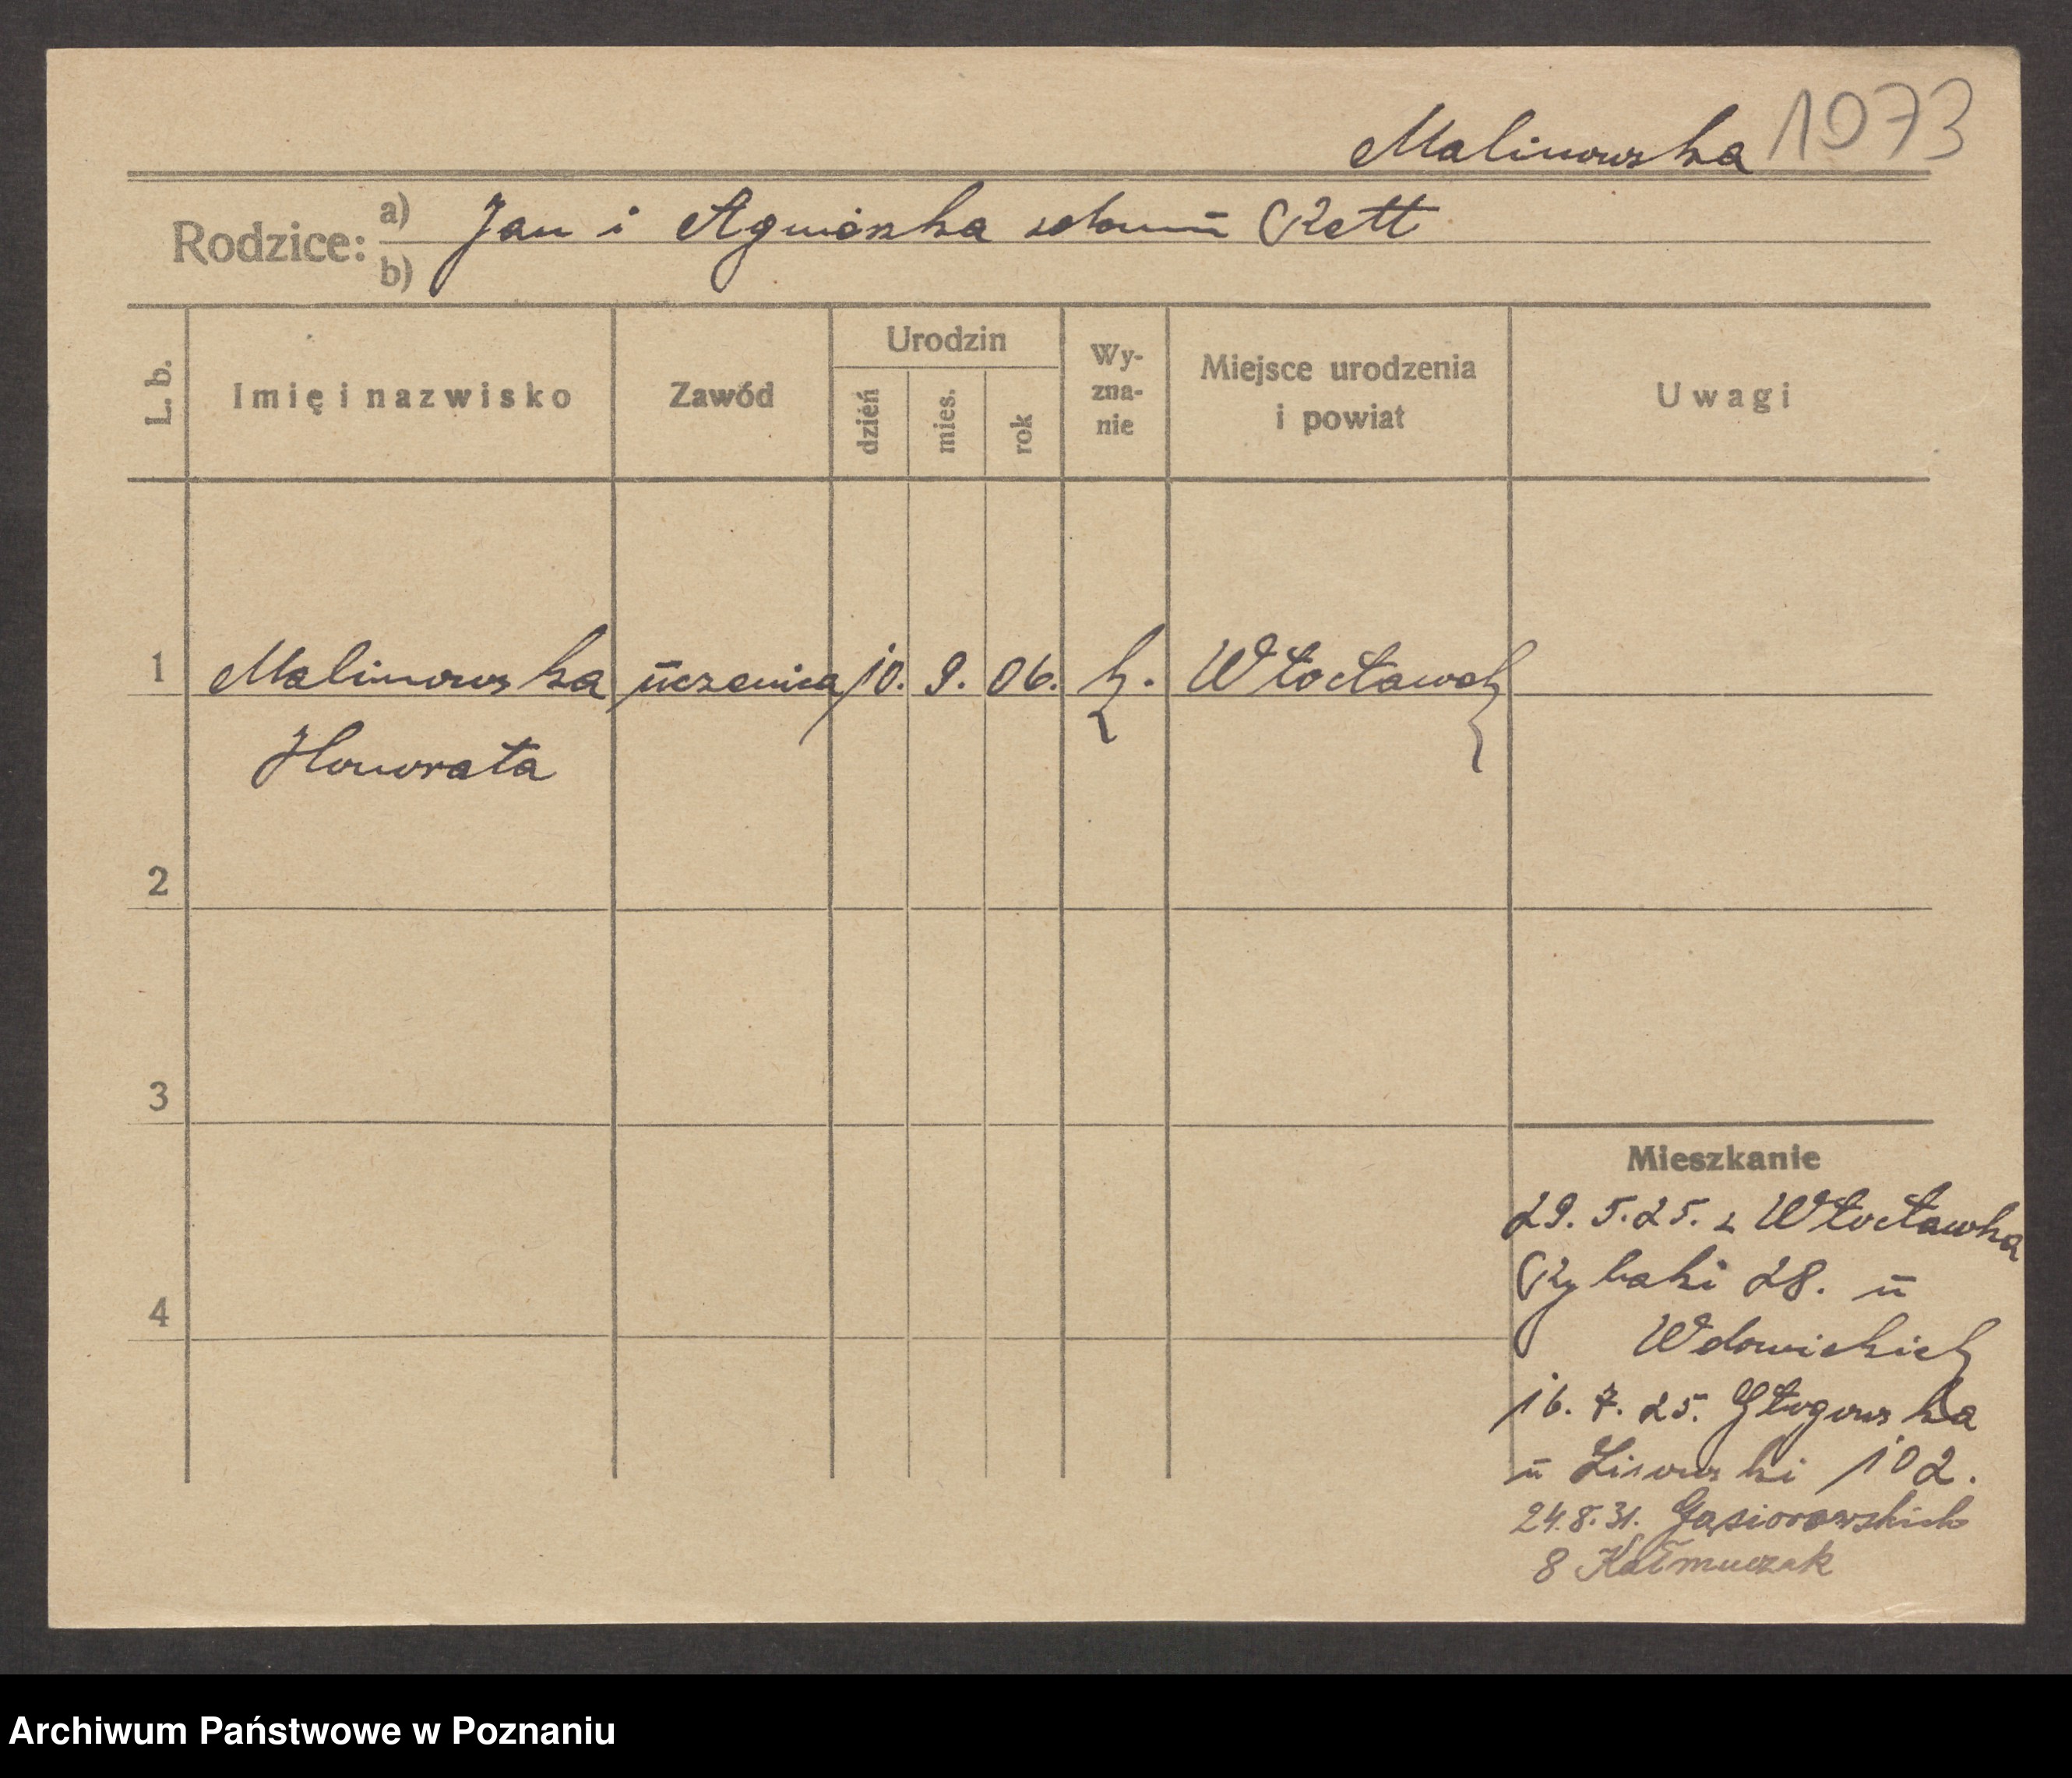 Malinowska 1073
Rodzice: a) Jan i Agnieszka z domu Rett
b)
L. b.
Imię i nazwisko
Zawód
Urodzin
dzień
mies.
rok
Wy-
zna-
nie
Miejsce urodzenia
i powiat
Uwagi
1 Malinowska uczenica 10. 9. 06. k. Włocławek
Honorata
2
3
4
Mieszkanie
29. 5. 25. z Włocławka
Rybaki 28. u
Wdowickich
16. 7. 25. Głogowska
u Lisowski 102.
24.8.31. Gąsiorowskich
8 Kałmuczak
Archiwum Państwowe w Poznaniu